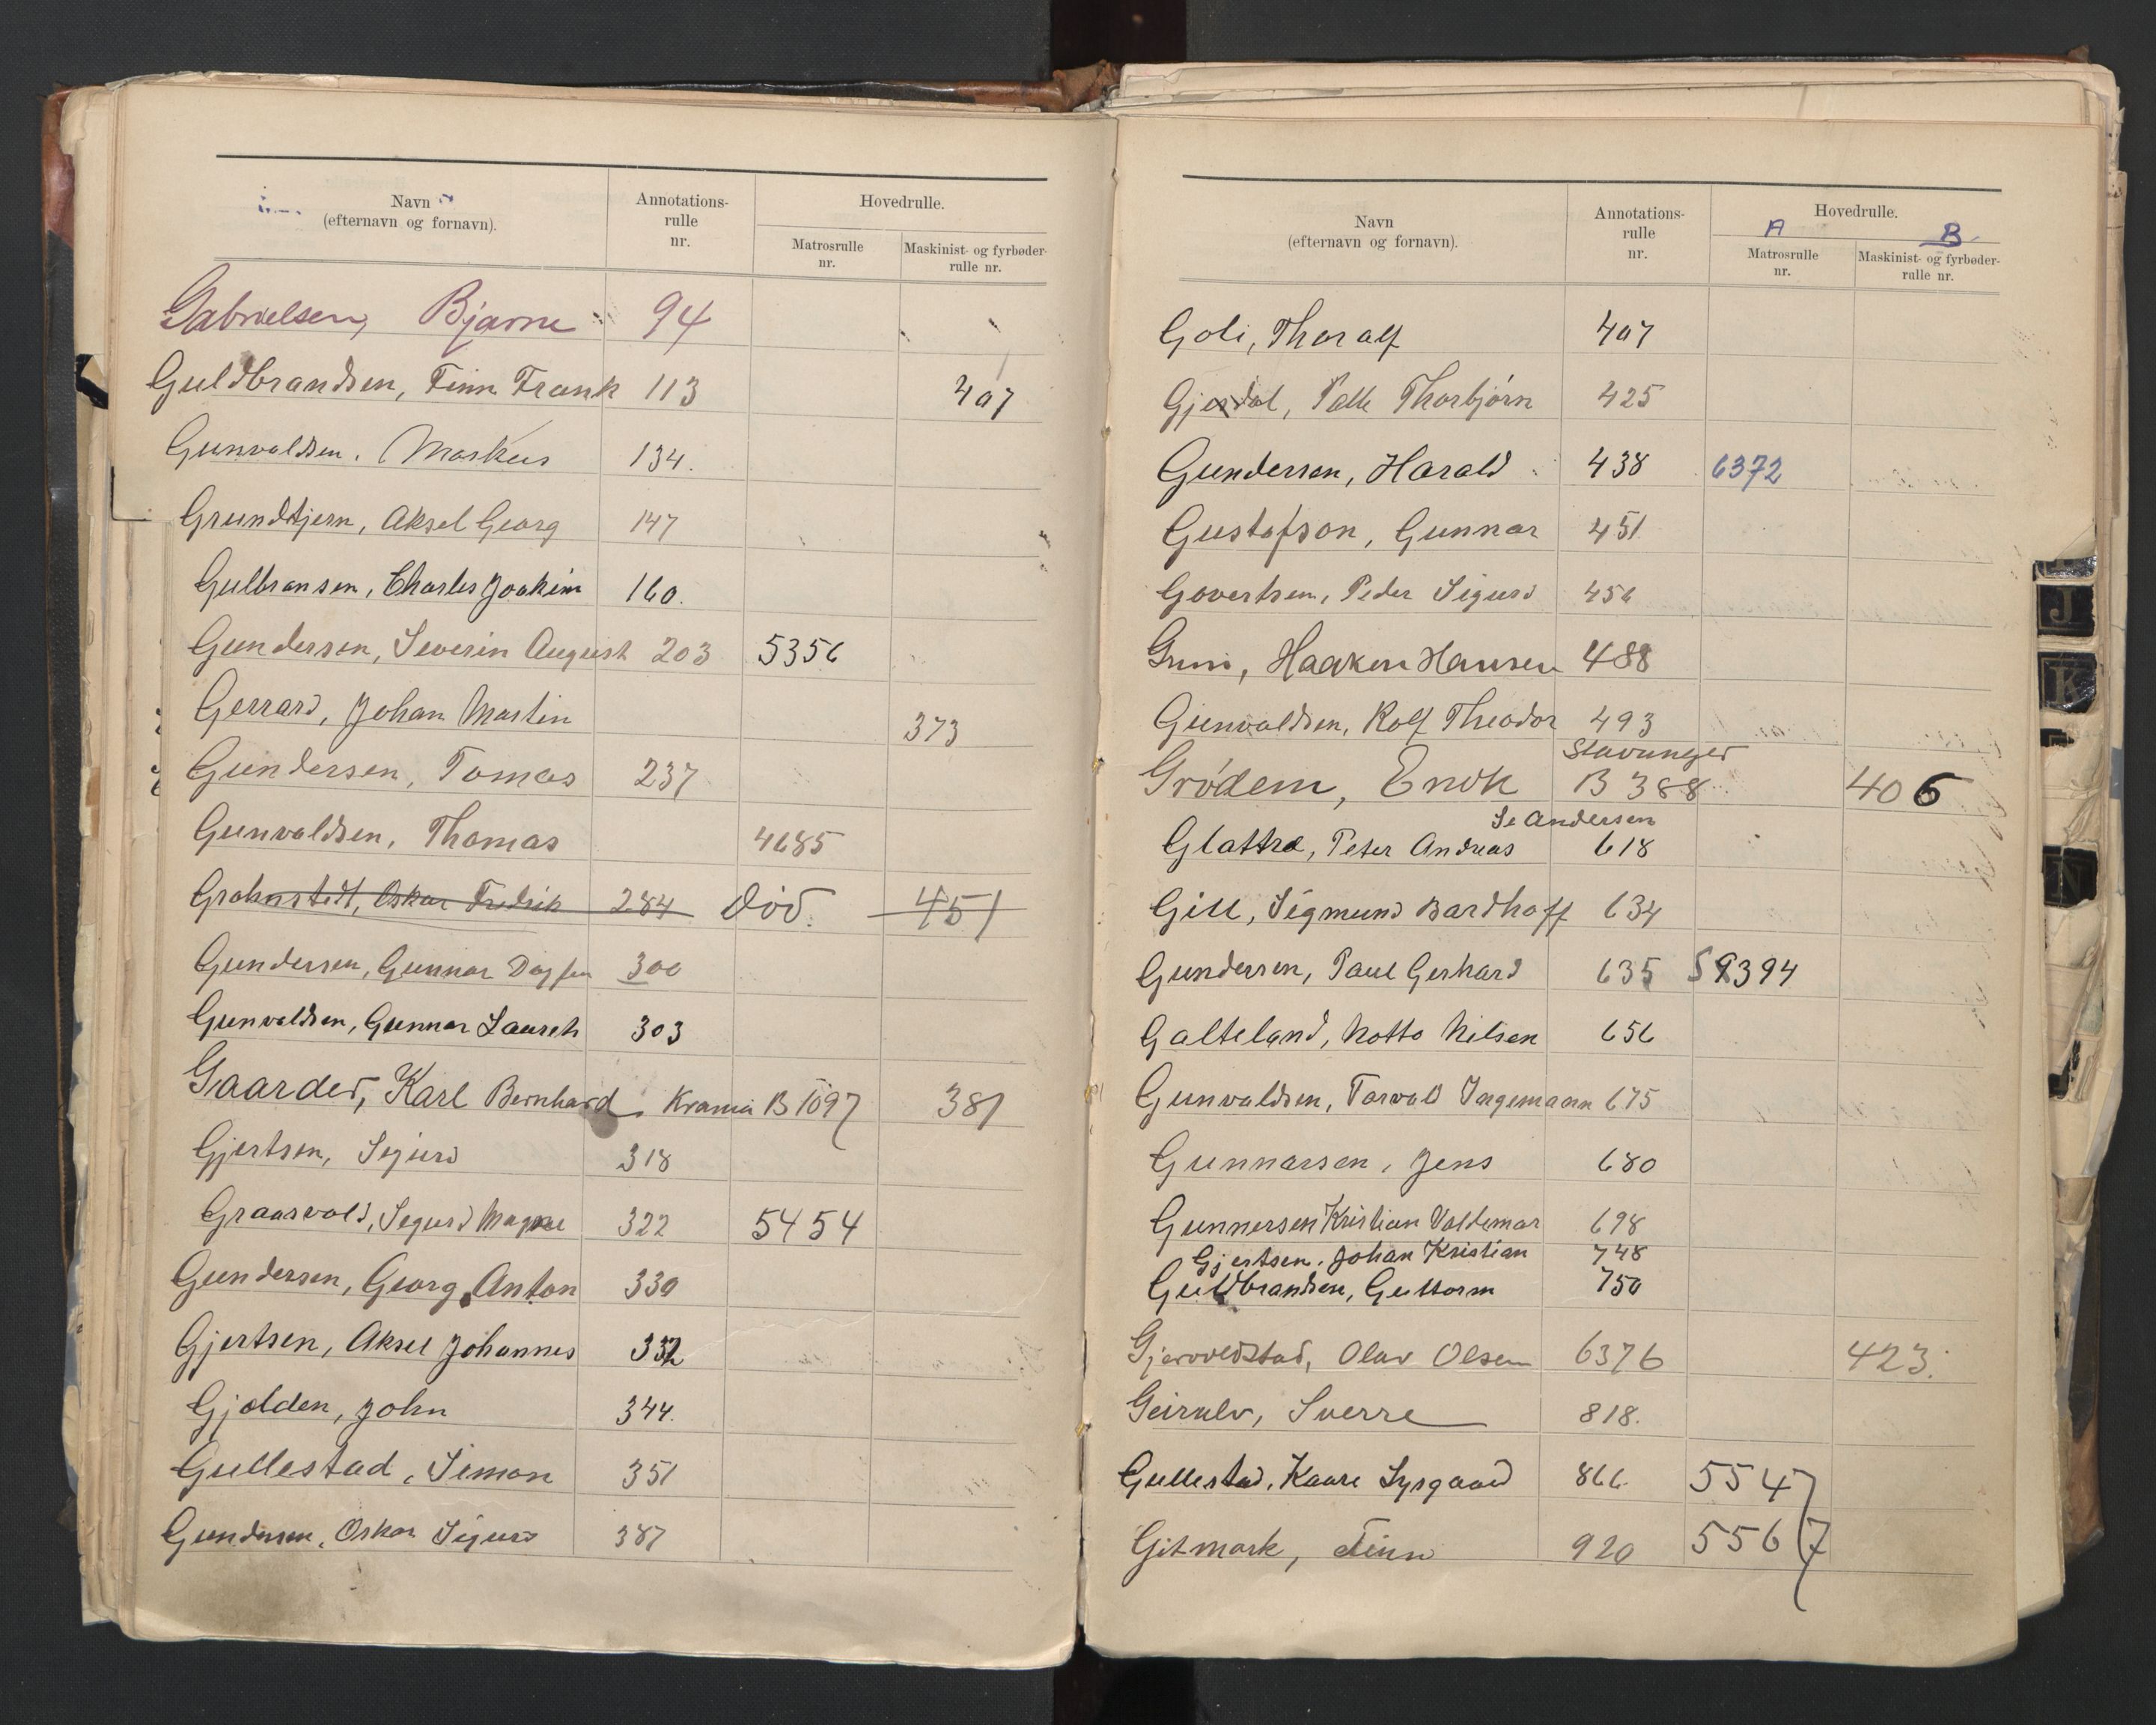 Navn
(efternavn og fornavn).
Annotations-
rulle
nr.
Hovedrulle.
Matrosrulle
nr.
Maskinist- og fyrbøder-
rulle nr.
Gabrielsen, Bjarne 94
Guldbrandsen, Finn Frank 113 407
Gunvaldsen, Markus 134.
Grundtjern, Aksel Georg 147
Gulbransen, Charles Joakim 160.
Gundersen, Severin August 203 5356
Gerrard, Johan Martin 373
Gundersen, Tomas 237
Gunvaldsen, Thomas 4685
Grahnstedt, Oskar Fredrik 284 død. 451
Gundersen, Gunnar Dagfin 300
Gunvaldsen, Gunnar Laurets 303
Gaarder, Karl Bernhard, Krania B 1097 381
Gjertsen, Sigurd 318
Graasvold, Sigurd Magne 322 5454
Gundersen, Georg Anton 330
Gjertsen, Aksel Johannes 332
Gjolden, John 344.
Gullestad, Simon 351
Gundersen, Oskar Sigurd 387
Navn
(efternavn og fornavn).
Annotations-
rulle
nr.
Hovedrulle.
A B
Matrosrulle
nr.
Maskinist- og fyrbøder-
rulle nr.
Goli, Thoralf 407
Gjerdal, Palle Thorbjørn 425
Gundersen, Harald 438 6372
Gustafson, Gunnar 451
Govertsen, Peder Sigurd 456
Haakon Hansen 488
Gunvaldsen, Rolf Theodor 493
Stavanger
Grödem, Enok B 388 406
Se Andersen
Glattre, Peter Andreas 618
Gill, Sigmund Bardhoff 634
Gundersen, Paul Gerhard 635 S 9394
Galteland, Notto Nilsen 656
Gunvaldsen, Torvald Ingemann 675
Gunnarsen, Jens 680
Gunnersen Kristian Valdemar 698
Gjertsen, Johan Kristian 748
Guldbrandsen, Guttorm 750
Gjervoldstad, Olav Olsen 6376 423.
Geirulv, Sverre 818.
Gullestad, Kaare Lysgaard 866 5547
Gitmark, Finn 920 5567
J
K
N